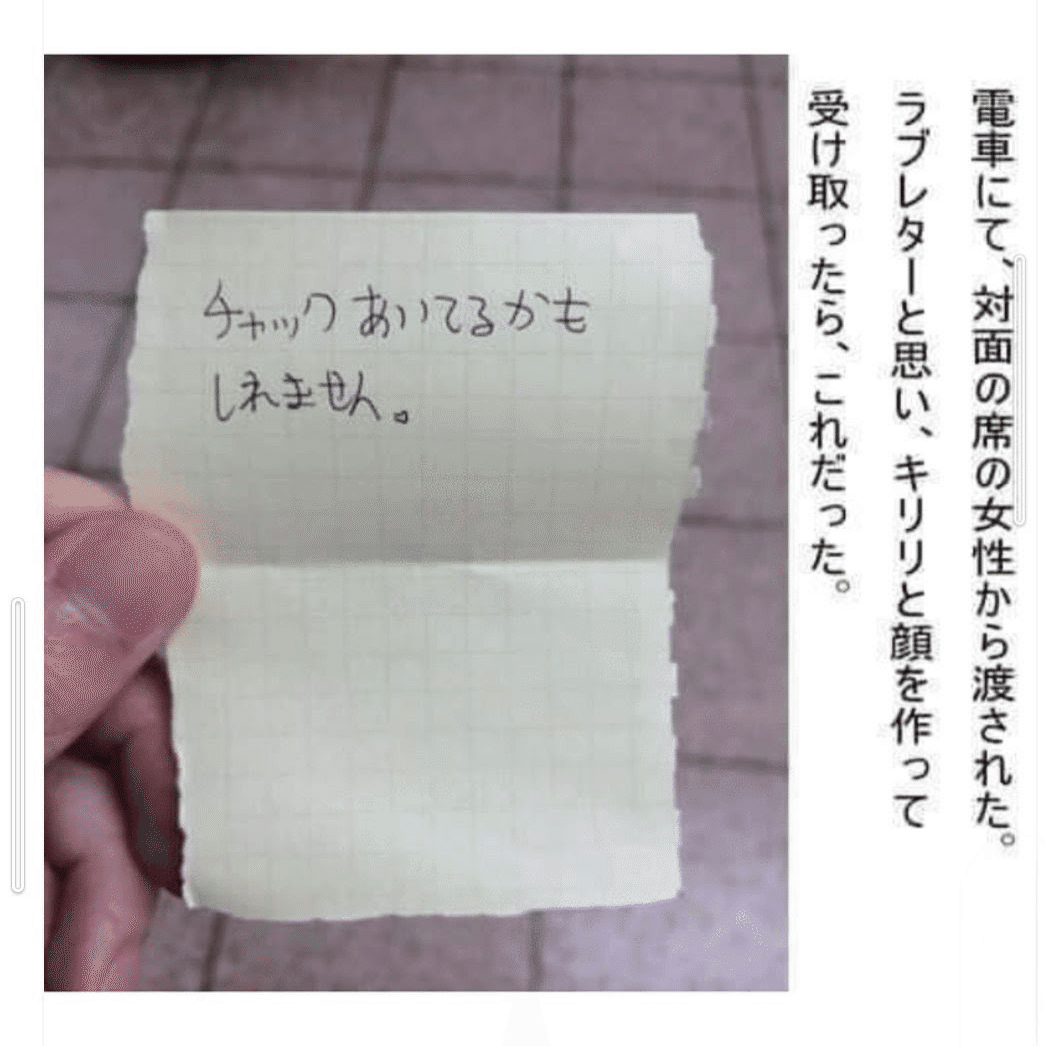 電車にて、対面の席の女性から渡された。
ラブレターと思い、キリリと顔を作って
受け取ったら、これだった。
チャックあいてるかも
しれません。